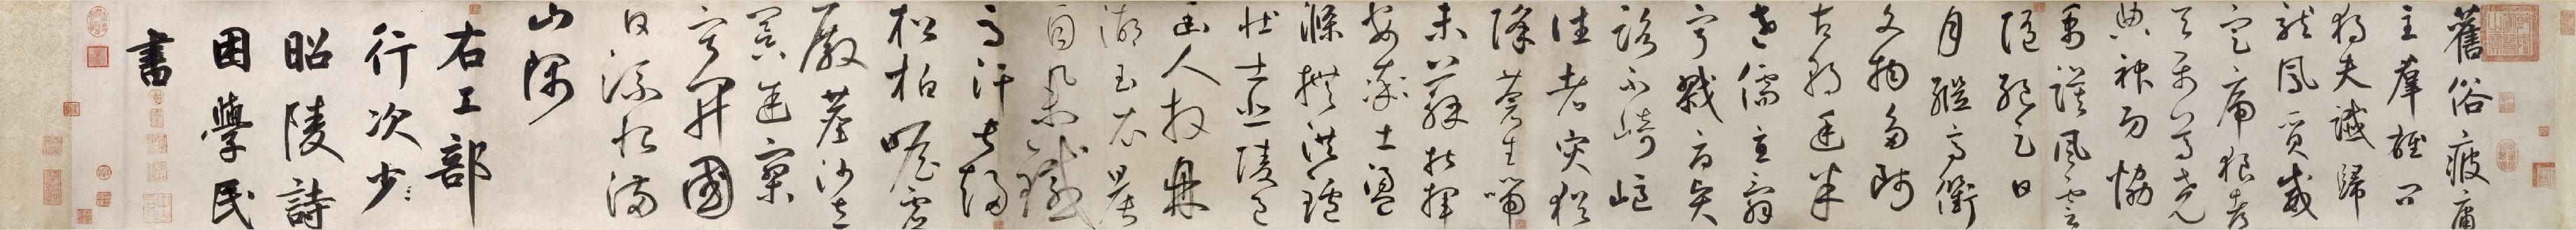 舊俗疲庸
主羣雄問
獨夫讖歸
龍鳳質威
定虎狼都
天屬尊堯
典神功協
禹謨風雲
隨絕足日
月繼高衢
文物多師
古朝廷半
老儒直詞
寧戮辱賢
路不崎嶇
往者災猶
降蒼生喘
未蘇指揮
安率土盪
滌撫洪爐
壯士悲陵邑
幽人拜鼎
湖玉衣晨
自舉鐵
馬汗常趨
松柏瞻虛
殿塵沙立
暝途寂
寥開國
日流恨滿
山隅
右工部
行次少
昭陵詩
困學民
書